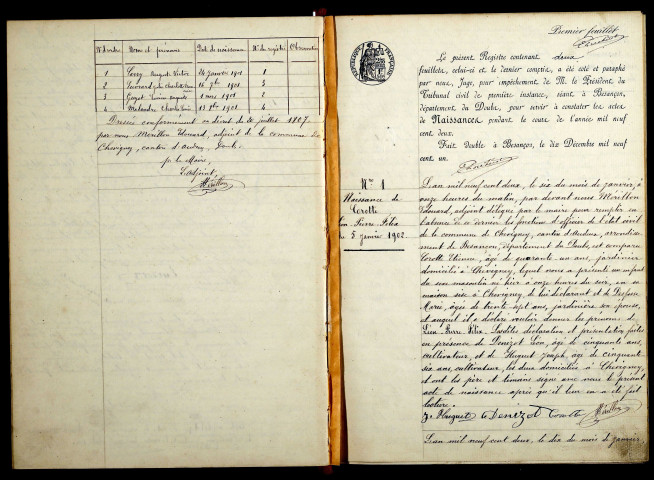 Nos d'ordre Nom et prénoms Date de naissance Nos du registre Observations
1 Auguste Victor 24 janvier 1901 1
2 16 7bre 1901 3
3 Guyot 1 mars 1901 2
4 13 9bre 1901 4
Dressée conformément au décret du 20 juillet 1807
par nous Mérillon Edouard, adjoint de la commune de
Chevigney, canton d'Audeux, Doubs.
Pr le Maire,
L'adjoint,
Mérillon
Premier feuillet
Le présent Registre contenant deux
feuillets, celui-ci et le dernier compris, a été coté et paraphé
par nous, Juge, pour empêchement de M. le Président du
Tribunal civil de première instance, séant à Besançon,
département du Doubs, pour servir à constater les actes
de Naissances pendant le cours de l'année mil neuf
cent deux.
Fait Double à Besançon, le dix Décembre mil neuf
cent un.
No 1
Naissance de
Corotte
Léon Pierre Félix
du 5 janvier 1902
L'an mil neuf cent deux, le six du mois de janvier, à
onze heures du matin, par devant nous Mérillon
Edouard, adjoint délégué par le maire pour remplir en
l'absence de ce dernier les fonctions d'officier de l'état civil
de la commune de Chevigney, canton d'Audeux, arrondisse-
ment de Besançon, département du Doubs, est comparu
Corotte Etienne, âgé de quarante-un ans, jardinier
domicilié à Chevigney, lequel nous a présenté un enfant
du sexe masculin né hier à onze heures du soir, en sa
maison sise à Chevigney, de lui déclarant et de
Marie, âgée de trente-sept ans, jardinière son épouse,
et auquel il a déclaré vouloir donner les prénoms de
Léon Pierre Félix. Lesdites déclaration et présentation faites
en présence de Denizot Léon, âgé de cinquante ans,
cultivateur, et de Huguet Joseph, âgé de cinquante-
six ans, cultivateur, les deux domiciliés à Chevigney,
et ont les père et témoins signé avec nous le présent
acte de naissance après qu'il leur en a été fait
lecture.
Huguet Denizot Corotte Mérillon
L'an mil neuf cent deux, le dix du mois de janvier